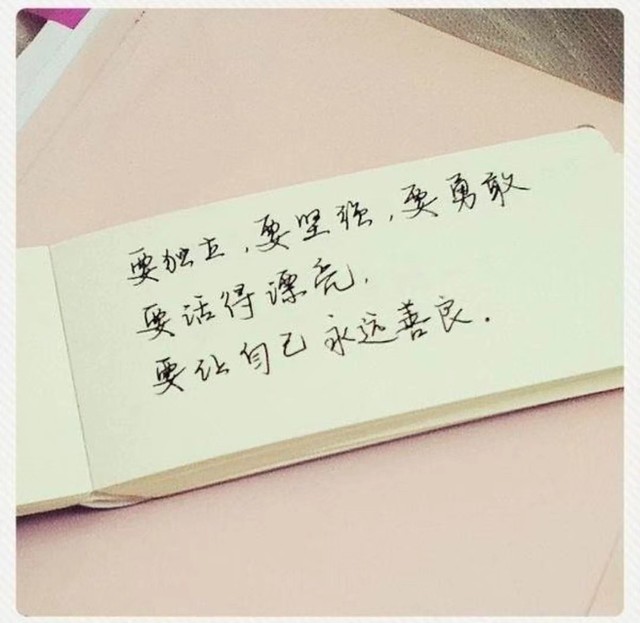 要独立,要坚强,要勇敢
要活得漂亮,
要让自己永远善良.